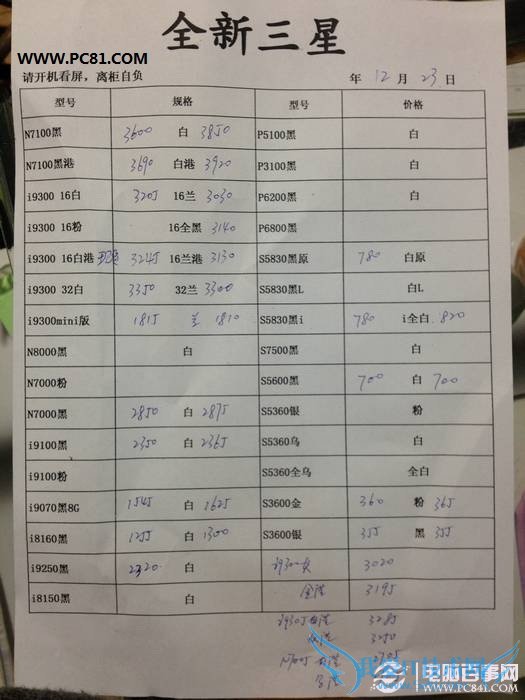 WWW.PC81.COM
全新三星
请开机看屏，离柜自负 年 12 月 23 日
型号 规格 型号 价格
N7100黑 3600 白 3850 P5100黑 白
N7100黑港 3690 白港 3920 P3100黑 白
i9300 16白 3205 16兰 3030 P6200黑 白
i9300 16粉 16全黑 3140 P6800黑
i9300 16白港 3245 16兰港 3130 S5830黑原 780 白原
i9300 32白 3350 32兰 3300 S5830黑L 白L
i9300mini版 1815 兰 1810 S5830黑i 780 i全白 820
N8000黑 白 S7500黑 白
N7000粉 S5600黑 700 白 700
N7000黑 2850 白 2875 S5360银 粉
i9100黑 2350 白 2365 S5360乌 白
i9100粉 S5360全乌 全白
i9070黑8G 1545 白 1625 S3600金 360 粉 365
i8160黑 1255 白 1300 S3600银 355 黑 355
i9250黑 2320 白 3020
i8150黑 白 3195
3285
3250
电脑百事网
WWW.PC841.COM